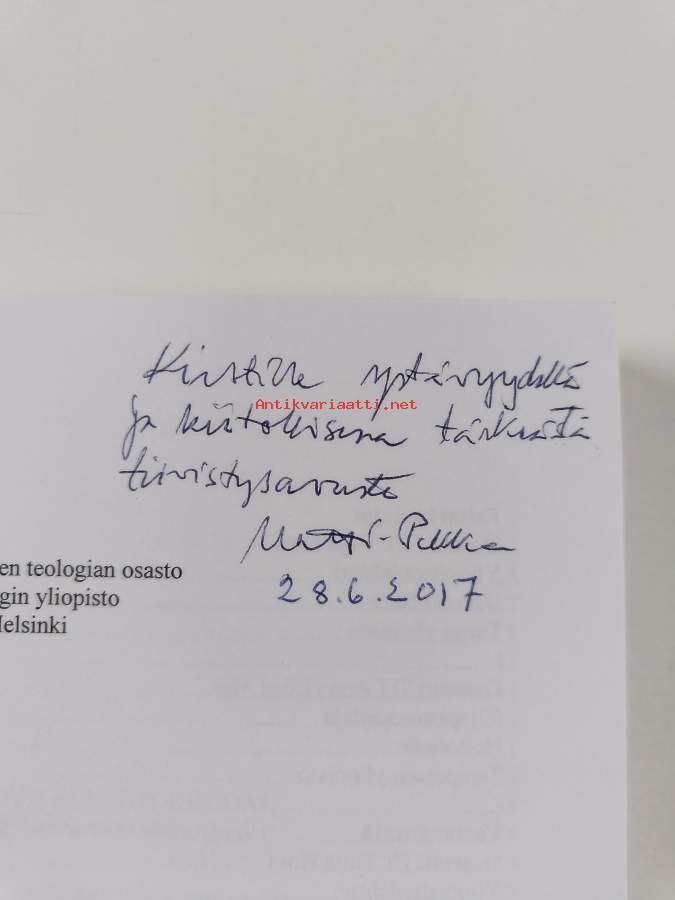 Kirstille ystävyydellä
Antikvariaatti.net
ja kiitollisena tärkeästä
tiivistysavusta
Matti-Pekka
28.6.2017
en teologian osasto
gin yliopisto
Helsinki